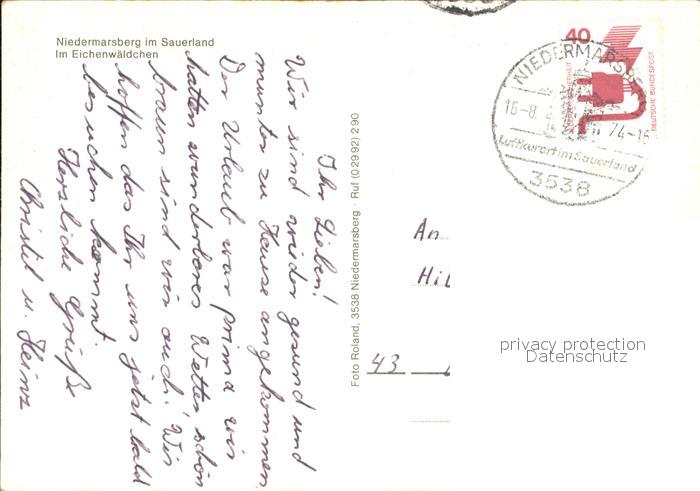 Niedermarsberg im Sauerland
Im Eichenwäldchen
Ihr Lieben!
Wir sind wieder gesund und
munter zu Hause angekommen.
Der Urlaub war prima wir
hatten wunderbares Wetter, schön
braun sind wir auch. Wir
hoffen das Ihr uns jetzt bald
besuchen kommt.
Herzliche Grüße
Christel u. Heinz
Foto Roland, 3538 Niedermarsberg · Ruf (0 29 92) 2 90
40
DEUTSCHE BUNDESPOST
NIEDERMARSBERG
16-8. 74-16
Luftkurort im Sauerland
3538
An
Hil
43
privacy protection
Datenschutz